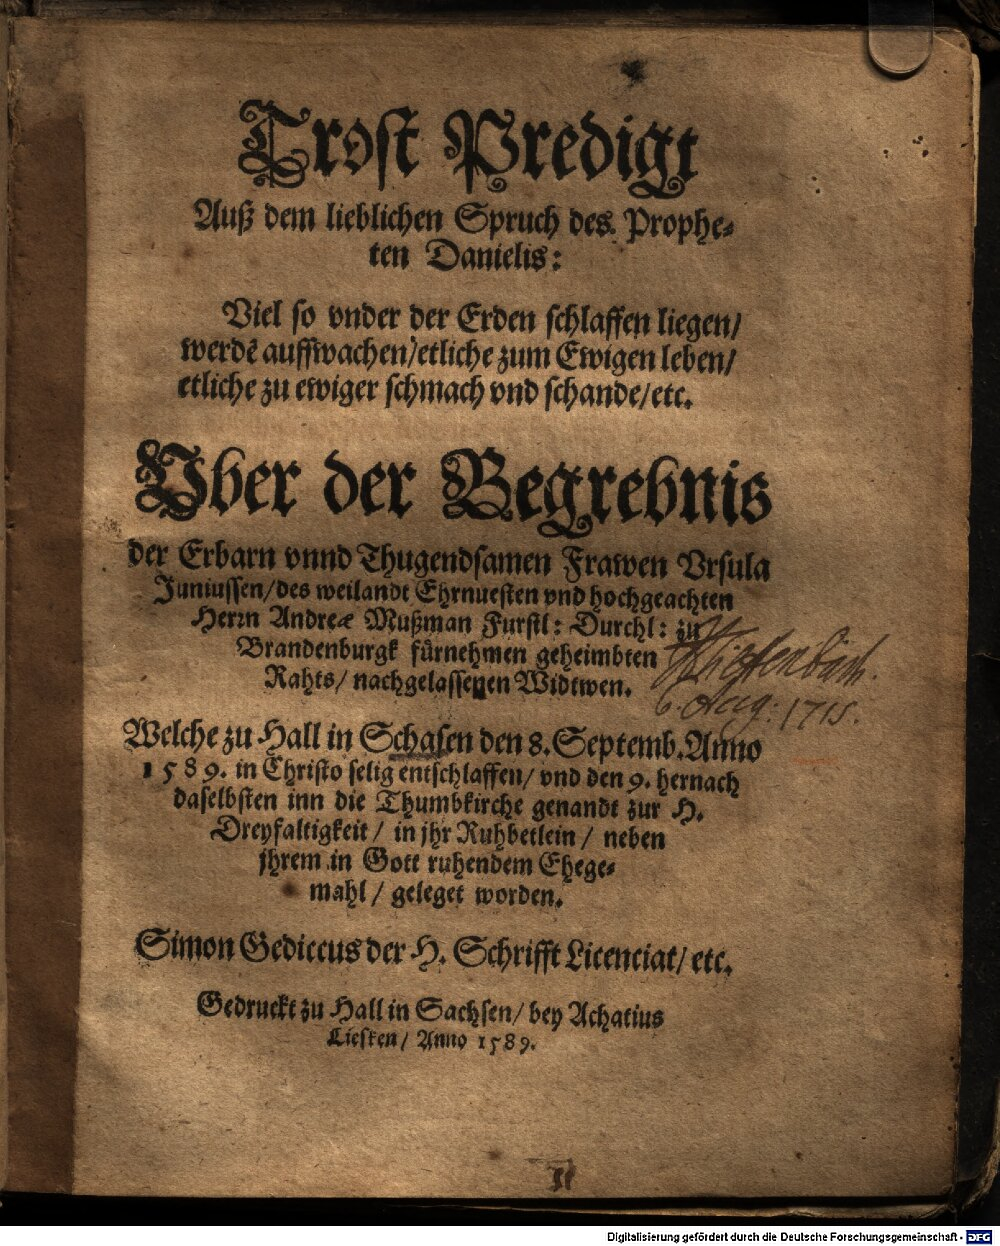 Trost Predigt
Auß dem lieblichen Spruch des Prophe-
ten Danielis:
Viel so vnder der Erden schlaffen liegen/
werdē auffwachen/etliche zum Ewigen leben/
etliche zu ewiger schmach vnd schande/etc.
Vber der Begrebnis
der Erbarn vnnd Thugendsamen Frawen Vrsula
Juniussen/des weilandt Ehrnuesten vnd hochgeachten
Herrn Andreæ Mußman Furstl: Durchl: zu
Brandenburgk fürnehmen geheimbten
Rahts/ nachgelassenen Widtwen.
6. Aug: 1715.
Welche zu Hall in Schasen den 8. Septemb. Anno
1589. in Christo selig entschlaffen/ vnd den 9. hernach
daselbsten inn die Thumbkirche genandt zur H.
Dreyfaltigkeit/ in jhr Ruhbetlein/ neben
jhrem in Gott ruhendem Ehege-
mahl/ geleget worden.
Simon Gediccus der H. Schrifft Licenciat/ etc.
Gedruckt zu Hall in Sachsen/ bey Achatius
Liesken/ Anno 1589.
Digitalisierung gefördert durch die Deutsche Forschungsgemeinschaft - DFG